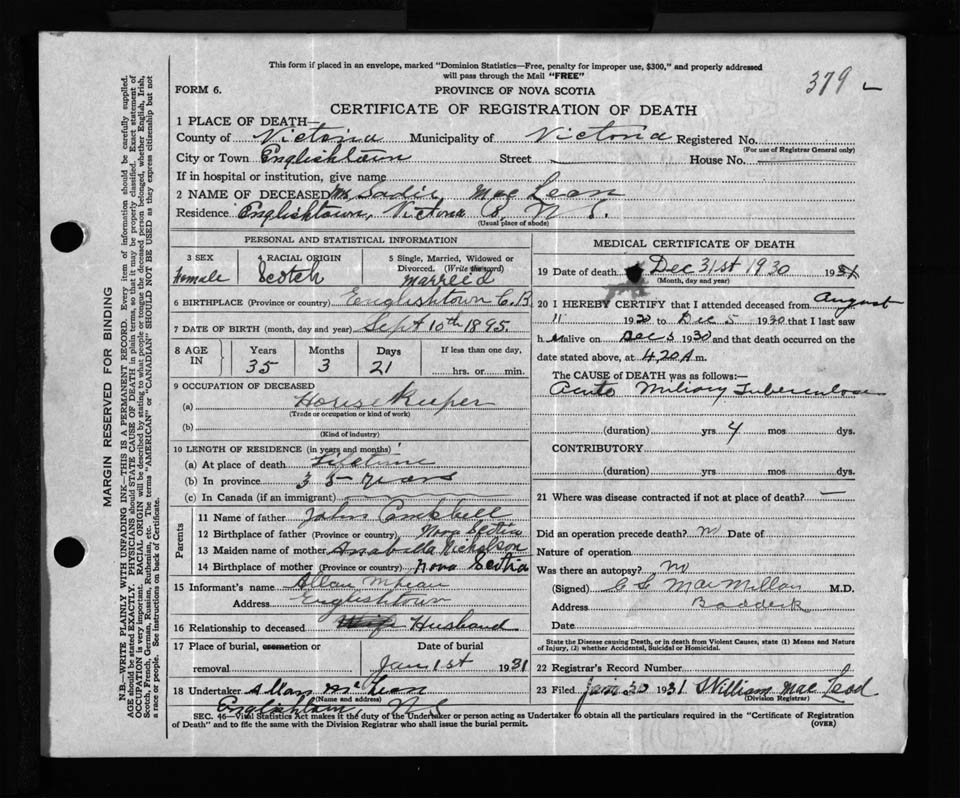 This form if placed in an envelope, marked "Dominion Statistics—Free, penalty for improper use, $300," and properly addressed
will pass through the Mail "FREE"
379
FORM 6.
PROVINCE OF NOVA SCOTIA
CERTIFICATE OF REGISTRATION OF DEATH
1 PLACE OF DEATH—
County of Victoria Municipality of Victoria Registered No.
(For use of Registrar General only)
City or Town Englishtown Street — House No.
If in hospital or institution, give name
2 NAME OF DECEASED Sadie MacLean
Residence Englishtown, Victoria Co, N.S.
(Usual place of abode)
PERSONAL AND STATISTICAL INFORMATION
3 SEX
Female
4 RACIAL ORIGIN
Scotch
5 Single, Married, Widowed or
Divorced. (Write the word)
Marreid
6 BIRTHPLACE (Province or country) Englishtown C.B.
7 DATE OF BIRTH (month, day and year) Sept 10th 1895.
8 AGE IN
Years Months Days If less than one day,
35 3 21 hrs. or min.
9 OCCUPATION OF DECEASED
(a) House Keeper
(Trade or occupation or kind of work)
(b)
(Kind of industry)
10 LENGTH OF RESIDENCE (in years and months)
(a) At place of death Lifetime
(b) In province 35 years
(c) In Canada (if an immigrant)
Parents
11 Name of father John Campbell
12 Birthplace of father (Province or country) Nova Scotia
13 Maiden name of mother Annabella Nicholson
14 Birthplace of mother (Province or country) Nova Scotia
15 Informant's name Allan McLean
Address Englishtown
16 Relationship to deceased Wife Husband
17 Place of burial, cremation or Date of burial
removal Jan 1st 1931
18 Undertaker Allan McLean
(Name and address)
Englishtown, N.S.
MEDICAL CERTIFICATE OF DEATH
19 Date of death Dec 31st 1930 193
(Month, day and year)
20 I HEREBY CERTIFY that I attended deceased from August
11 1930 to Dec 5 1930 that I last saw
h alive on Dec 5 1930 and that death occurred on the
date stated above, at 4.20 A m.
The CAUSE of DEATH was as follows:—
Acute Miliary Tuberculosis
(duration) yrs 4 mos dys.
CONTRIBUTORY
(duration) yrs. mos dys.
21 Where was disease contracted if not at place of death? —
Did an operation precede death? no Date of
Nature of operation
Was there an autopsy? no
(Signed) C L MacMillan M.D.
Address Baddeck
Date
State the Disease causing Death, or in death from Violent Causes, state (1) Means and Nature
of Injury, (2) whether Accidental, Suicidal or Homicidal.
22 Registrar's Record Number
23 Filed Jan 30 1931 William MacLeod
(Division Registrar)
SEC. 46—Vital Statistics Act makes it the duty of the Undertaker or person acting as Undertaker to obtain all the particulars required in the "Certificate of Registration
of Death" and to file the same with the Division Registrar who shall issue the burial permit.
(OVER)
MARGIN RESERVED FOR BINDING
N.B.—WRITE PLAINLY WITH UNFADING INK—THIS IS A PERMANENT RECORD. Every item of information should be carefully supplied.
AGE should be stated EXACTLY. PHYSICIANS should STATE CAUSE OF DEATH in plain terms, so that it may be properly classified. Exact statement of
OCCUPATION is very important. RACIAL ORIGIN will be described by stating to what people or tongue the deceased person belonged, whether English, Irish,
Scotch, French, German, Russian, Ruthenian, etc. The terms "AMERICAN" or "CANADIAN" SHOULD NOT BE USED as they express citizenship but not
a race or people. See instructions on back of Certificate.